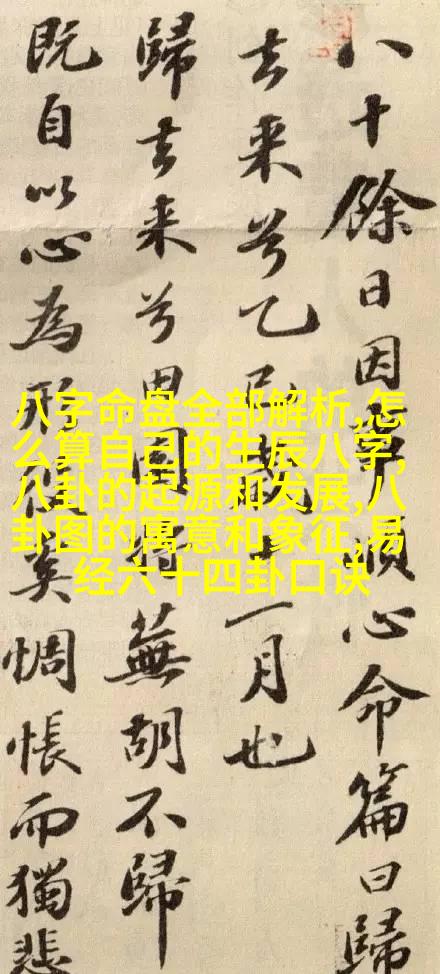 八十餘日因事順心命篇曰歸
去来兮乙巳歲十一月也
歸去来兮田園将蕪胡不歸
既自以心為形役奚惆悵而獨悲
八字命盘全部解析,怎
么算自己的生辰八字,
八卦的起源和发展,八
卦图的寓意和象征,易
经六十四卦口诀